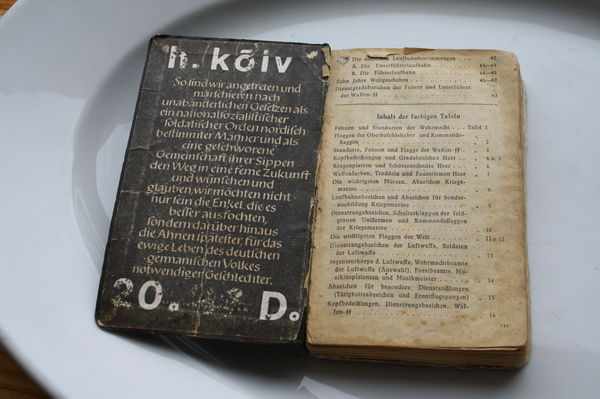 h. kõiv
So sind wir angetreten und
marschieren nach
unabänderlichen Gesetzen als
ein nationalsozialistischer
soldatischer Orden nordisch
bestimmter Männer und als
eine geschworene
Gemeinschaft ihrer Sippen
den Weg in eine ferne Zukunft
und wünschen und
glauben, wir möchten nicht
nur sein die Enkel, die es
besser ausfochten,
sondern darüber hinaus
die Ahnen spätester, für das
ewige Leben des deutschen
germanischen Volkes
notwendiger Geschlechter.
20. D.
Die Laufbahnbestimmungen . . . 43
A. Die Unterführerlaufbahn . . . 43—44
B. Die Führerlaufbahn . . . 44—45
Zehn Jahre Weltgeschehen . . . 45—62
Dienstgradabzeichen der Führer und Unterführer
der Waffen-ϟϟ . . . 63
Inhalt der farbigen Tafeln
Fahnen und Standarten der Wehrmacht . . . Tafel 1
Flaggen der Oberbefehlshaber und Kommando-
flaggen . . . 2
Standarte, Fahnen und Flagge der Waffen-ϟϟ . . . 3
Kopfbedeckungen und Gradabzeichen Heer . . . 4 u. 5
Kragenpatten und Schützenschnüre Heer . . . 6
Waffenfarben, Troddeln und Faustriemen Heer . . . 7
Die wichtigsten Mützen, Abzeichen Kriegs-
marine . . . 8
Laufbahnabzeichen und Abzeichen für Sonder-
ausbildung Kriegsmarine . . . 9
Dienstrangabzeichen, Schulterklappen der feld-
grauen Uniformen und Kommandoflaggen
der Kriegsmarine . . . 10
Die wichtigsten Flaggen der Welt . . . 11 u. 12
Dienstrangabzeichen der Luftwaffe, Soldaten
der Luftwaffe . . . 13
Ingenieurkorps d. Luftwaffe, Wehrmachtbeamte
der Luftwaffe (Auswahl), Forstbeamte, Mu-
sikinspizienten und Musikmeister . . . 14
Abzeichen für besondere Dienststellungen
(Tätigkeitsabzeichen und Frontflugspangen) . . . 15
Kopfbedeckungen, Dienstrangabzeichen, Waf-
fen-ϟϟ . . . 16